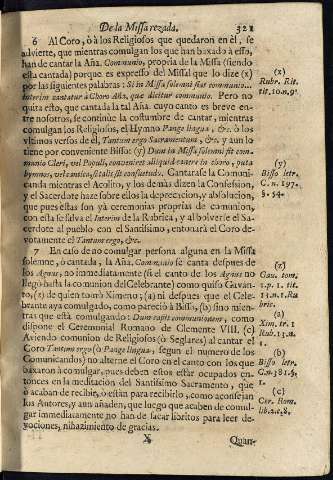 De la Missa rezada. 321
6 Al Coro, ò à los Religiosos que quedaron en èl, se
advierte, que mientras comulgan los que han baxado à esso,
han de cantar la Aña. Communio, propria de la Missa (siendo
esta cantada) porque es expresso del Missal que lo dize (x)
por las siguientes palabras: Si in Missa solemni fiat communio...
interim cantatur à Choro Aña, que dicitur communio. Pero no
quita esto, que cantada la tal Aña. cuyo canto es breve en-
tre nosotros, se continùe la costumbre de cantar, mientras
comulgan los Religiosos, el Hymno Pange lingua, &c. ò los
ultimos versos de el, Tantum ergo Sacramentum, &c. y aun lo
tiene por conveniente Bisso: (y) Dum in Missa solemni fit com-
munio Cleri, vel Populi, conveniens aliquid canere in choro, puta
hymnos, vel cantica, si talis sit consuetudo. Cantarase la Comuni-
canda mientras el Acolito, y los demàs dizen la Confession,
y el Sacerdote haze sobre ellos la deprecacion, y absolucion,
que pues estas son yà ceremonias proprias de comunion,
con esta se salva el Interim de la Rubrica, y al bolverse el Sa-
cerdote al pueblo con el Santissimo, entonarà el Coro de-
votamente el Tantum ergo, &c.
7 En caso de no comulgar persona alguna en la Missa
solemne, ò cantada, la Aña. Communio se canta despues de
los Agnus, no immediatamente (si el canto de los Agnus no
llegò hasta la comunion del Celebrante) como quiso Gavan-
to, (z) de quien tomò Ximeno; (a) ni despues que el Cele-
brante aya comulgado, como pareciò à Bisso, (b) sino mien-
tras que està comulgando: Dum capiti communionem, como
dispone el Ceremonial Romano de Clemente VIII. (c)
Aviendo comunion de Religiosos (ò Seglares) al cantar el
Coro Tantum ergo (ò Pange lingua, segun el numero de los
Comunicandos) no alterne el Coro en el canto con los que
baxaron à comulgar, pues deben estos estar ocupados en-
tonces en la meditacion del Santissimo Sacramento, que
ò acaban de recibir, ò estàn para recibirlo, como aconsejan
los Autores, y aun añaden, que luego que acaben de comul-
gar immediatamente no han de sacar libritos para leer de-
vociones, ni hazimiento de gracias.
X Quan-
(x)
Rubr. Rit.
tit. 10. n. 9.
(y)
Bisso letr.
C. n. 197.
§. 54.
(z)
Gau. tom.
1. p. 2. tit.
13. n. 1. Ru
bric.
(a)
Xim. tr. 1
Rub. 13. n.
1.
(b)
Bisso letr.
C. n. 381. §.
1.
(c)
Cer. Rom.
lib. 2. c. 8.